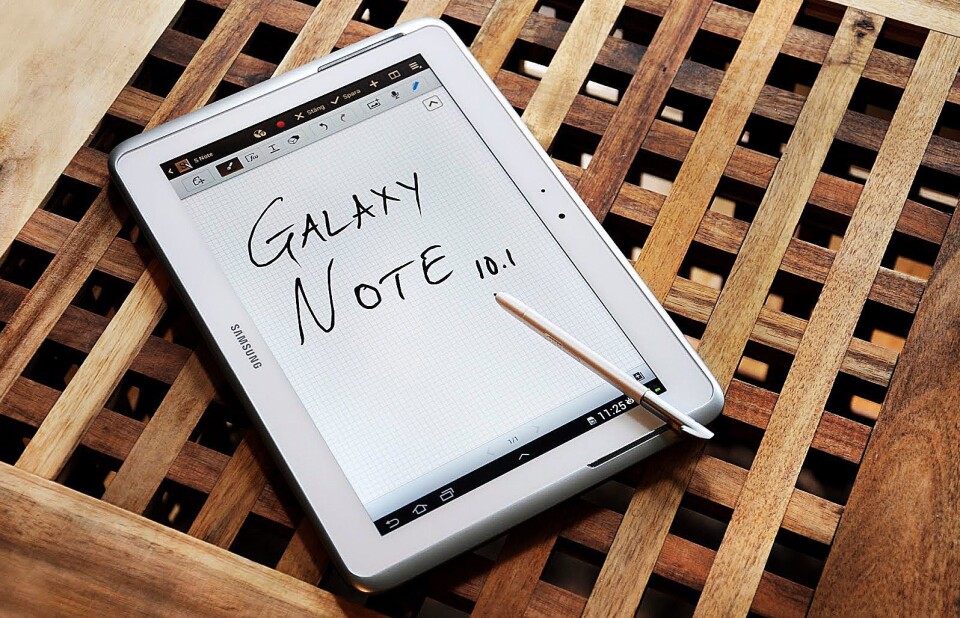 S Note
Stäng Spara
GALAXY
NOTE 10.1
SAMSUNG
1/1
11:25